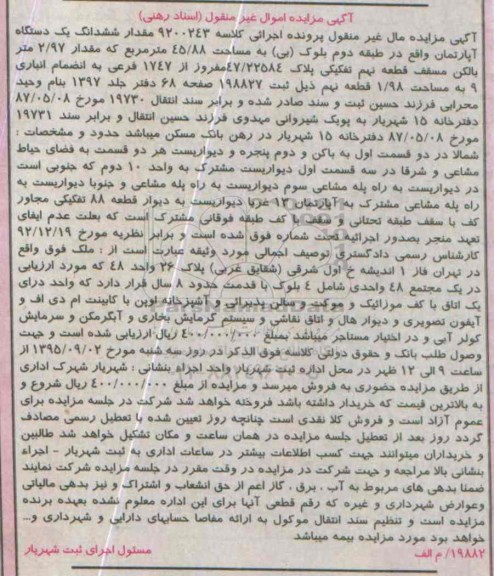 آگهی مزایده اموال غیر منقول (اسناد رهنی)
آگهی مزایده مال غیر منقول پرونده اجرائی کلاسه ۹۲۰۰۲۴۳ مقدار ششدانگ یک دستگاه
آپارتمان واقع در طبقه دوم بلوک (بی) به مساحت ۴۵/۸۸ مترمربع که مقدار ۲/۹۷ متر
بالکن مسقف قطعه نهم تفکیکی پلاک ۴۷/۲۲۵۸۴مفروز از ۱۷۴۷ فرعی به انضمام انباری
۹ به مساحت ۱/۹۸ قطعه نهم ذیل ثبت ۱۹۸۸۲۷ صفحه ۶۸ دفتر جلد ۱۳۹۷ بنام وحید
محرابی فرزند حسین ثبت و سند صادر شده و برابر سند انتقال ۱۹۷۳۰ مورخ ۸۷/۰۵/۰۸
دفترخانه ۱۵ شهریار به پویک شیروانی مهدوی فرزند حسین انتقال و برابر سند ۱۹۷۳۱
مورخ ۸۷/۰۵/۰۸ دفترخانه ۱۵ شهریار در رهن بانک مسکن میباشد حدود و مشخصات :
شمالا در دو قسمت اول به باکن و دوم پنجره و دیواریست هر دو قسمت به فضای حیاط
مشاعی و شرقا در سه قسمت اول دیواریست مشترک به واحد ۱۰ دوم که جنوبی است
در دیواریست به راه پله مشاعی سوم دیواریست به راه پله مشاعی و جنوبا دیواریست به
راه پله مشاعی مشترک به آپارتمان ۱۲ غربا دیواریست به دیوار قطعه ۸۸ تفکیکی مجاور
کف با سقف طبقه تحتانی و سقف با کف طبقه فوقانی مشترک است که بعلت عدم ایفای
تعهد منجر بصدور اجرائیه تحت شماره فوق شده است و برابر نظریه مورخ ۹۲/۱۲/۱۹
کارشناس رسمی دادگستری توصیف اجمالی مورد وثیقه عبارت است از : ملک فوق واقع
در تهران فاز ۱ اندیشه خ اول شرقی (شقایق غربی) پلاک ۲۶ واحد ۴۸ که مورد ارزیابی
در یک مجتمع ۴۸ واحدی شامل ۴ بلوک با قدمت حدود ۸ سال قرار دارد که واحد درای
یک اتاق با کف موزائیک و موکت و سالن پذیرائی و آشپزخانه اوپن با کابینت ام دی اف و
آیفون تصویری و دیوار هال و اتاق نقاشی و سیستم گرمایش بخاری و آبگرمکن و سرمایش
کولر آبی و در اختیار مستاجر میباشد بمبلغ ۴۰۰/۰۰۰/۰۰۰ ریال ارزیابی شده است و جهت
وصول طلب بانک و حقوق دولتی کلاسه فوق الذکر در روز سه شنبه مورخ ۱۳۹۵/۰۹/۰۲ از
ساعت ۹ الی ۱۲ ظهر در محل اداره ثبت شهریار واحد اجراء بنشانی : شهریار شهرک اداری
از طریق مزایده حضوری به فروش میرسد و مزایده از مبلغ ۴۰۰/۰۰۰/۰۰۰ ریال شروع و
به بالاترین قیمت که خریدار داشته باشد فروخته خواهد شد شرکت در جلسه مزایده برای
عموم آزاد است و فروش کلا نقدی است چنانچه روز تعیین شده با تعطیل رسمی مصادف
گردد روز بعد از تعطیل جلسه مزایده در همان ساعت و مکان تشکیل خواهد شد طالبین
و خریداران میتوانند جهت کسب اطلاعات بیشتر در ساعات اداری به ثبت شهریار - اجراء
بنشانی بالا مراجعه و جهت شرکت در مزایده در وقت مقرر در جلسه مزایده شرکت نمایند
ضمنا بدهی های مربوط به آب ، برق ، گاز اعم از حق انشعاب و اشتراک و نیز بدهی مالیاتی
وعوارض شهرداری و غیره که رقم قطعی آنها برای این اداره معلوم نشده بعهده برنده
مزایده است و تنظیم سند انتقال موکول به ارائه مفاصا حسابهای دارایی و شهرداری و...
خواهد بود مورد مزایده بیمه میباشد
۱۹۸۸۲/ م الف مسئول اجرای ثبت شهریار